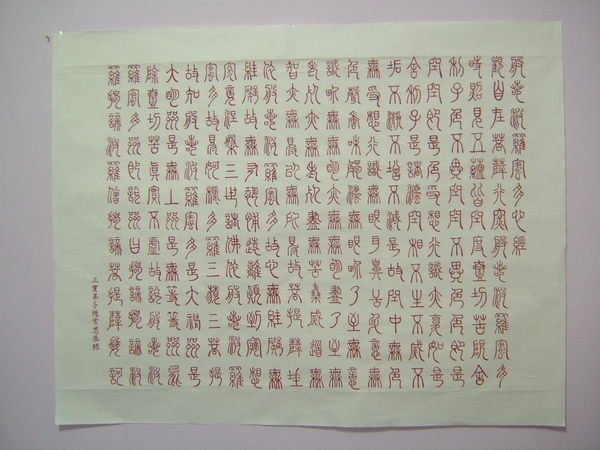 般若波羅蜜多心經
觀自在菩薩行深般若波羅蜜多
時照見五蘊皆空度一切苦厄舍
利子色不異空空不異色色即是
空空即是色受想行識亦復如是
舍利子是諸法空相不生不滅不
垢不淨不增不減是故空中無色
無受想行識無眼耳鼻舌身意無
色聲香味觸法無眼界乃至無意
識界無無明亦無無明盡乃至無
老死亦無老死盡無苦集滅道無
智亦無得以無所得故菩提薩埵
依般若波羅蜜多故心無罣礙無
罣礙故無有恐怖遠離顛倒夢想
究竟涅槃三世諸佛依般若波羅
蜜多故得阿耨多羅三藐三菩提
故知般若波羅蜜多是大神咒是
大明咒是無上咒是無等等咒能
除一切苦真實不虛故說般若波
羅蜜多咒即說咒曰揭諦揭諦波
羅揭諦波羅僧揭諦菩提薩婆訶
三寶弟子陳常恩恭錄